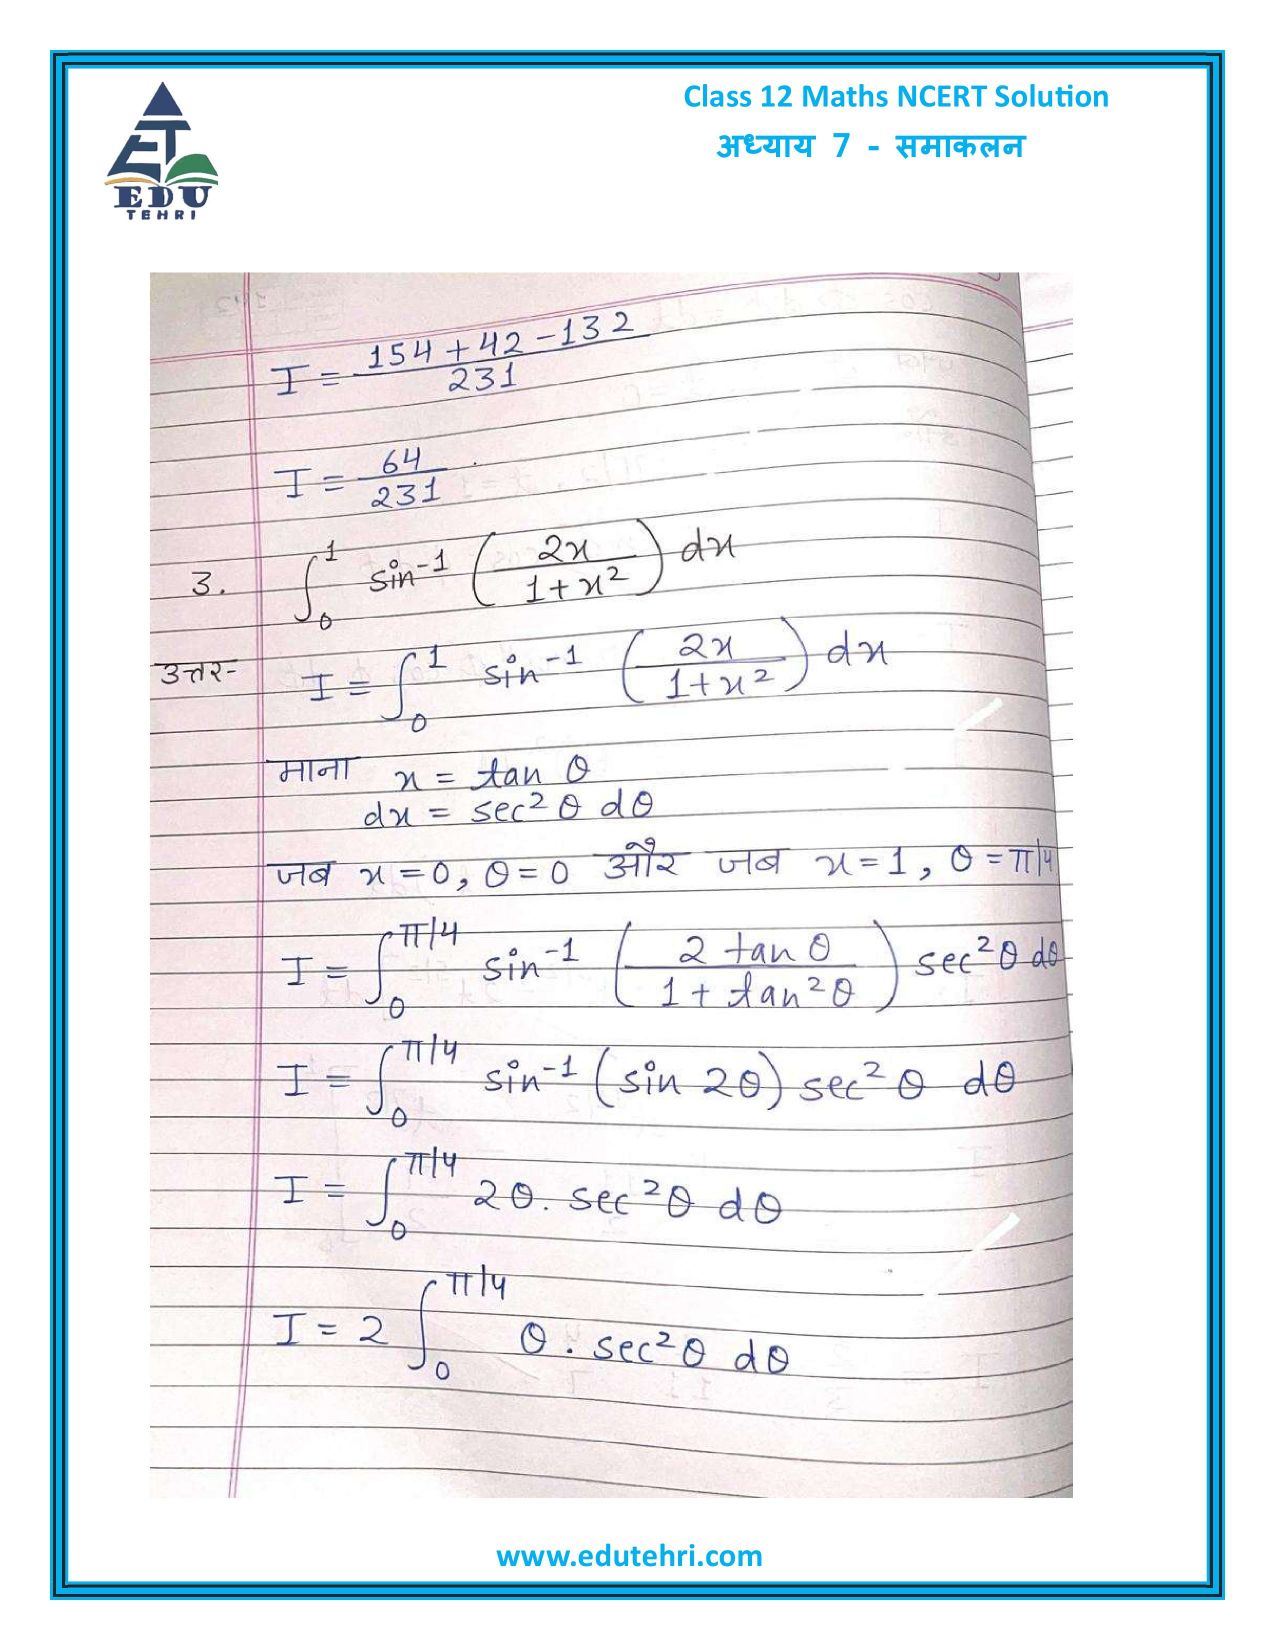 Class 12 Maths NCERT Solution
अध्याय 7 - समाकलन
EDU
TEHRI
I = (154 + 42 - 132)/231
I = 64/231
3. ∫₀¹ sin⁻¹ (2x/(1+x²)) dx
उत्तर- I = ∫₀¹ sin⁻¹ (2x/(1+x²)) dx
माना x = tan θ
dx = sec² θ dθ
जब x=0, θ=0 और जब x=1, θ=π/4
I = ∫₀^π/4 sin⁻¹ (2 tan θ/(1 + tan²θ)) sec²θ dθ
I = ∫₀^π/4 sin⁻¹ (sin 2θ) sec² θ dθ
I = ∫₀^π/4 2θ. sec²θ dθ
I = 2 ∫₀^π/4 θ . sec²θ dθ
www.edutehri.com